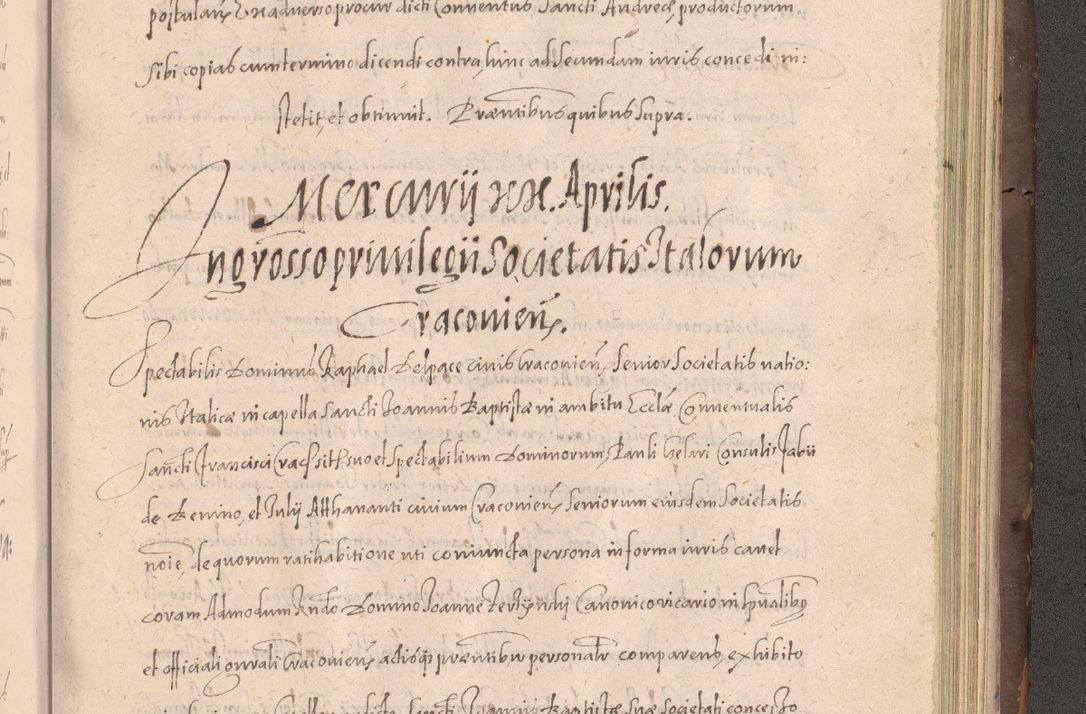 postulan̄ Ex adverso procur dicti Conventus Sancti Andreæ, productorum
sibi copias cum termino dicendi contra, hinc ad Secundam iuris concedi in:
stetit, et obtinuit. Præsentibus quibus supra.
Mercurij xix. Aprilis.
Ingrosso privilegii Societatis Italorum
Cracovien̄.
Spectabilis Dominus Raphael Delpace civis Cracovien̄, Senior Societatis natio:
nis Italicæ in capella Sancti Joannis Baptistæ in ambitu Ecclæ Conventualis
Sancti Francisci Crac sit̄ suo et Spectabilium Dominorum, Pauli Helari Consulis Fabii
de Benino, et Julij Atthananti civium Cracovien̄, Seniorum eiusdem Societatis
noīe, de quorum ratihabitione uti coniuncta persona in forma iuris cavet
coram Admodum Rndo Domino Joanne Zerzynskij Canonico vicario in spūalibus
et officiali gnrali Cracovien̄, actis præsentibus personalr comparens, exhibito
Joannis Baptistæ Suæ Societati concesso